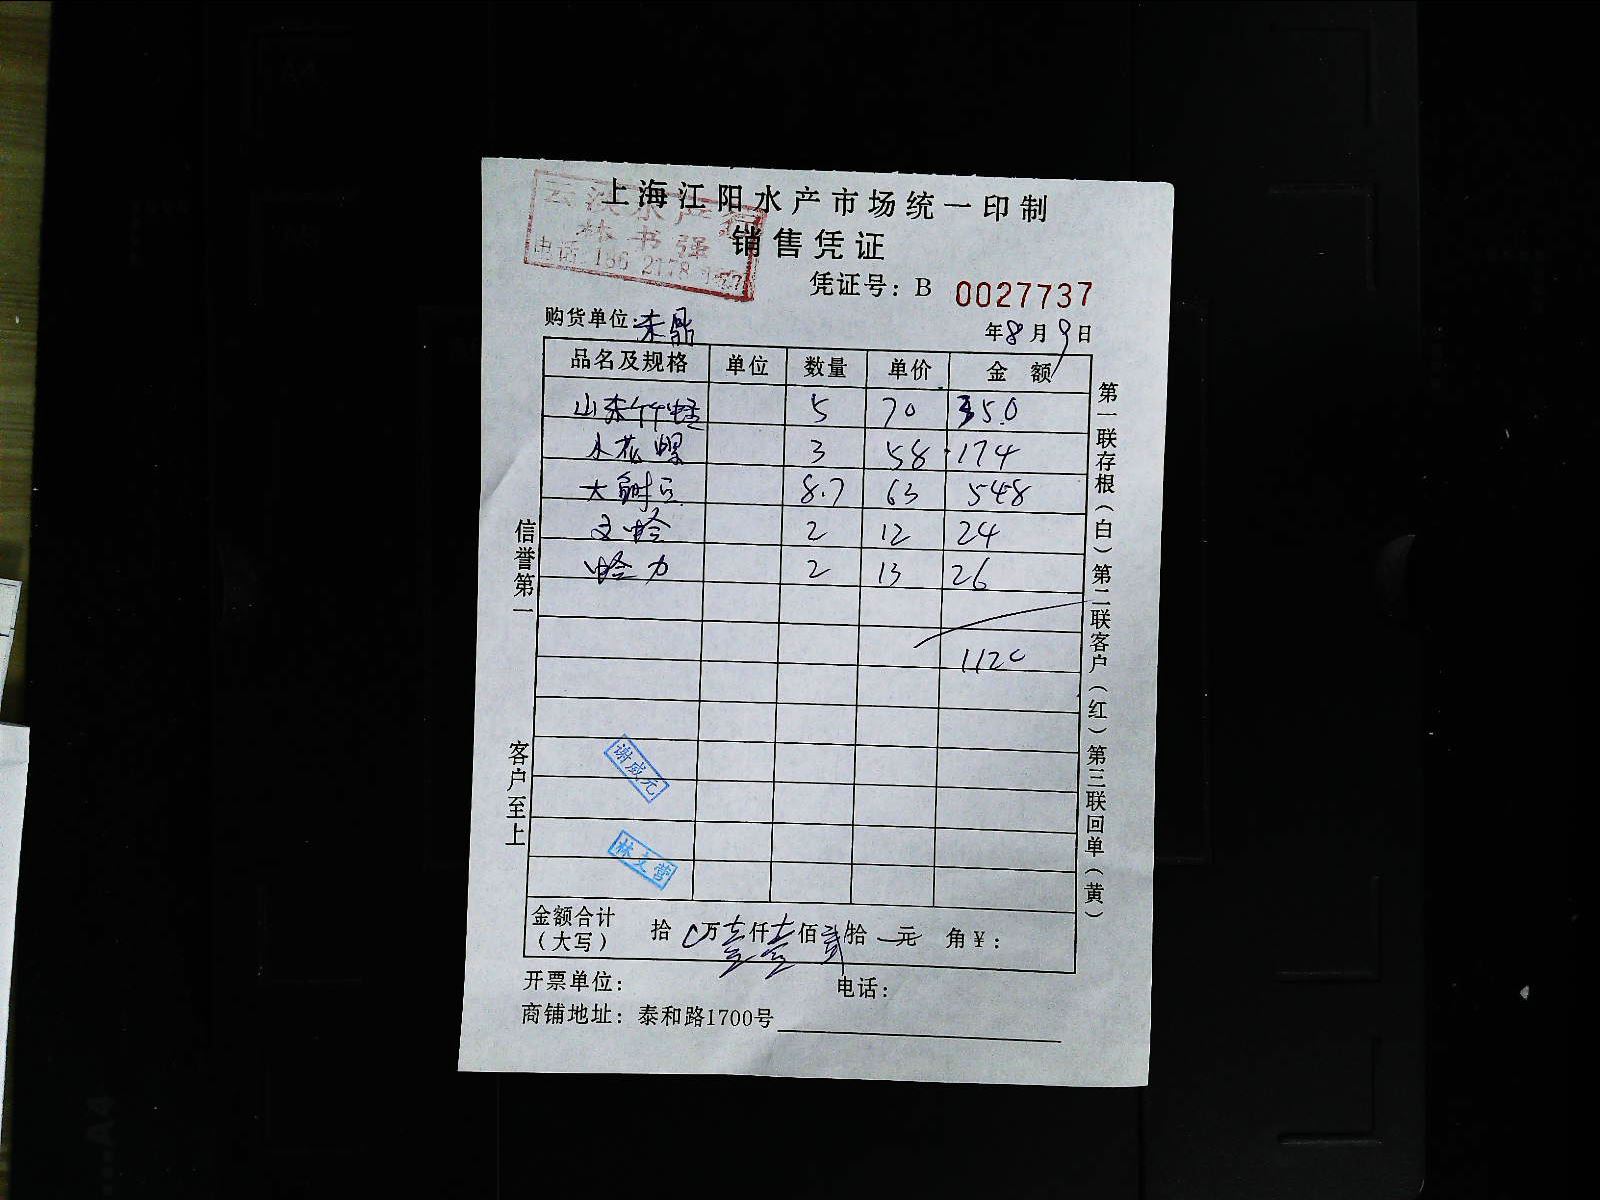 上海江阳水产市场统一印制
销售凭证
林书强
电话
凭证号：B 0027737
购货单位：
年8月9日
品名及规格 单位 数量 单价 金额
山东竹蛏 5 70 350
水花螺 3 58 174
大鲜贝 8.7 63 548
文蛤 2 12 24
蛤力 2 13 26
1120
谢成元
林文营
金额合计（大写） 拾 0万壹仟壹佰贰拾 元 角￥：
开票单位： 电话：
商铺地址：泰和路1700号
信誉第一
客户至上
第一联存根（白）第二联客户（红）第三联回单（黄）